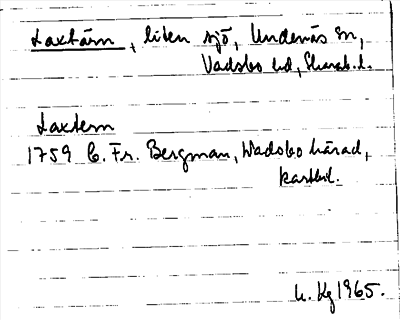 Laxtärn, liten sjö, Undenäs sn,
Vadsbo hd, Skarab. l.
Laxtern
1759 C. Fr. Bergman, Wadsbo härad,
kartbil.
L. Kg 1965.